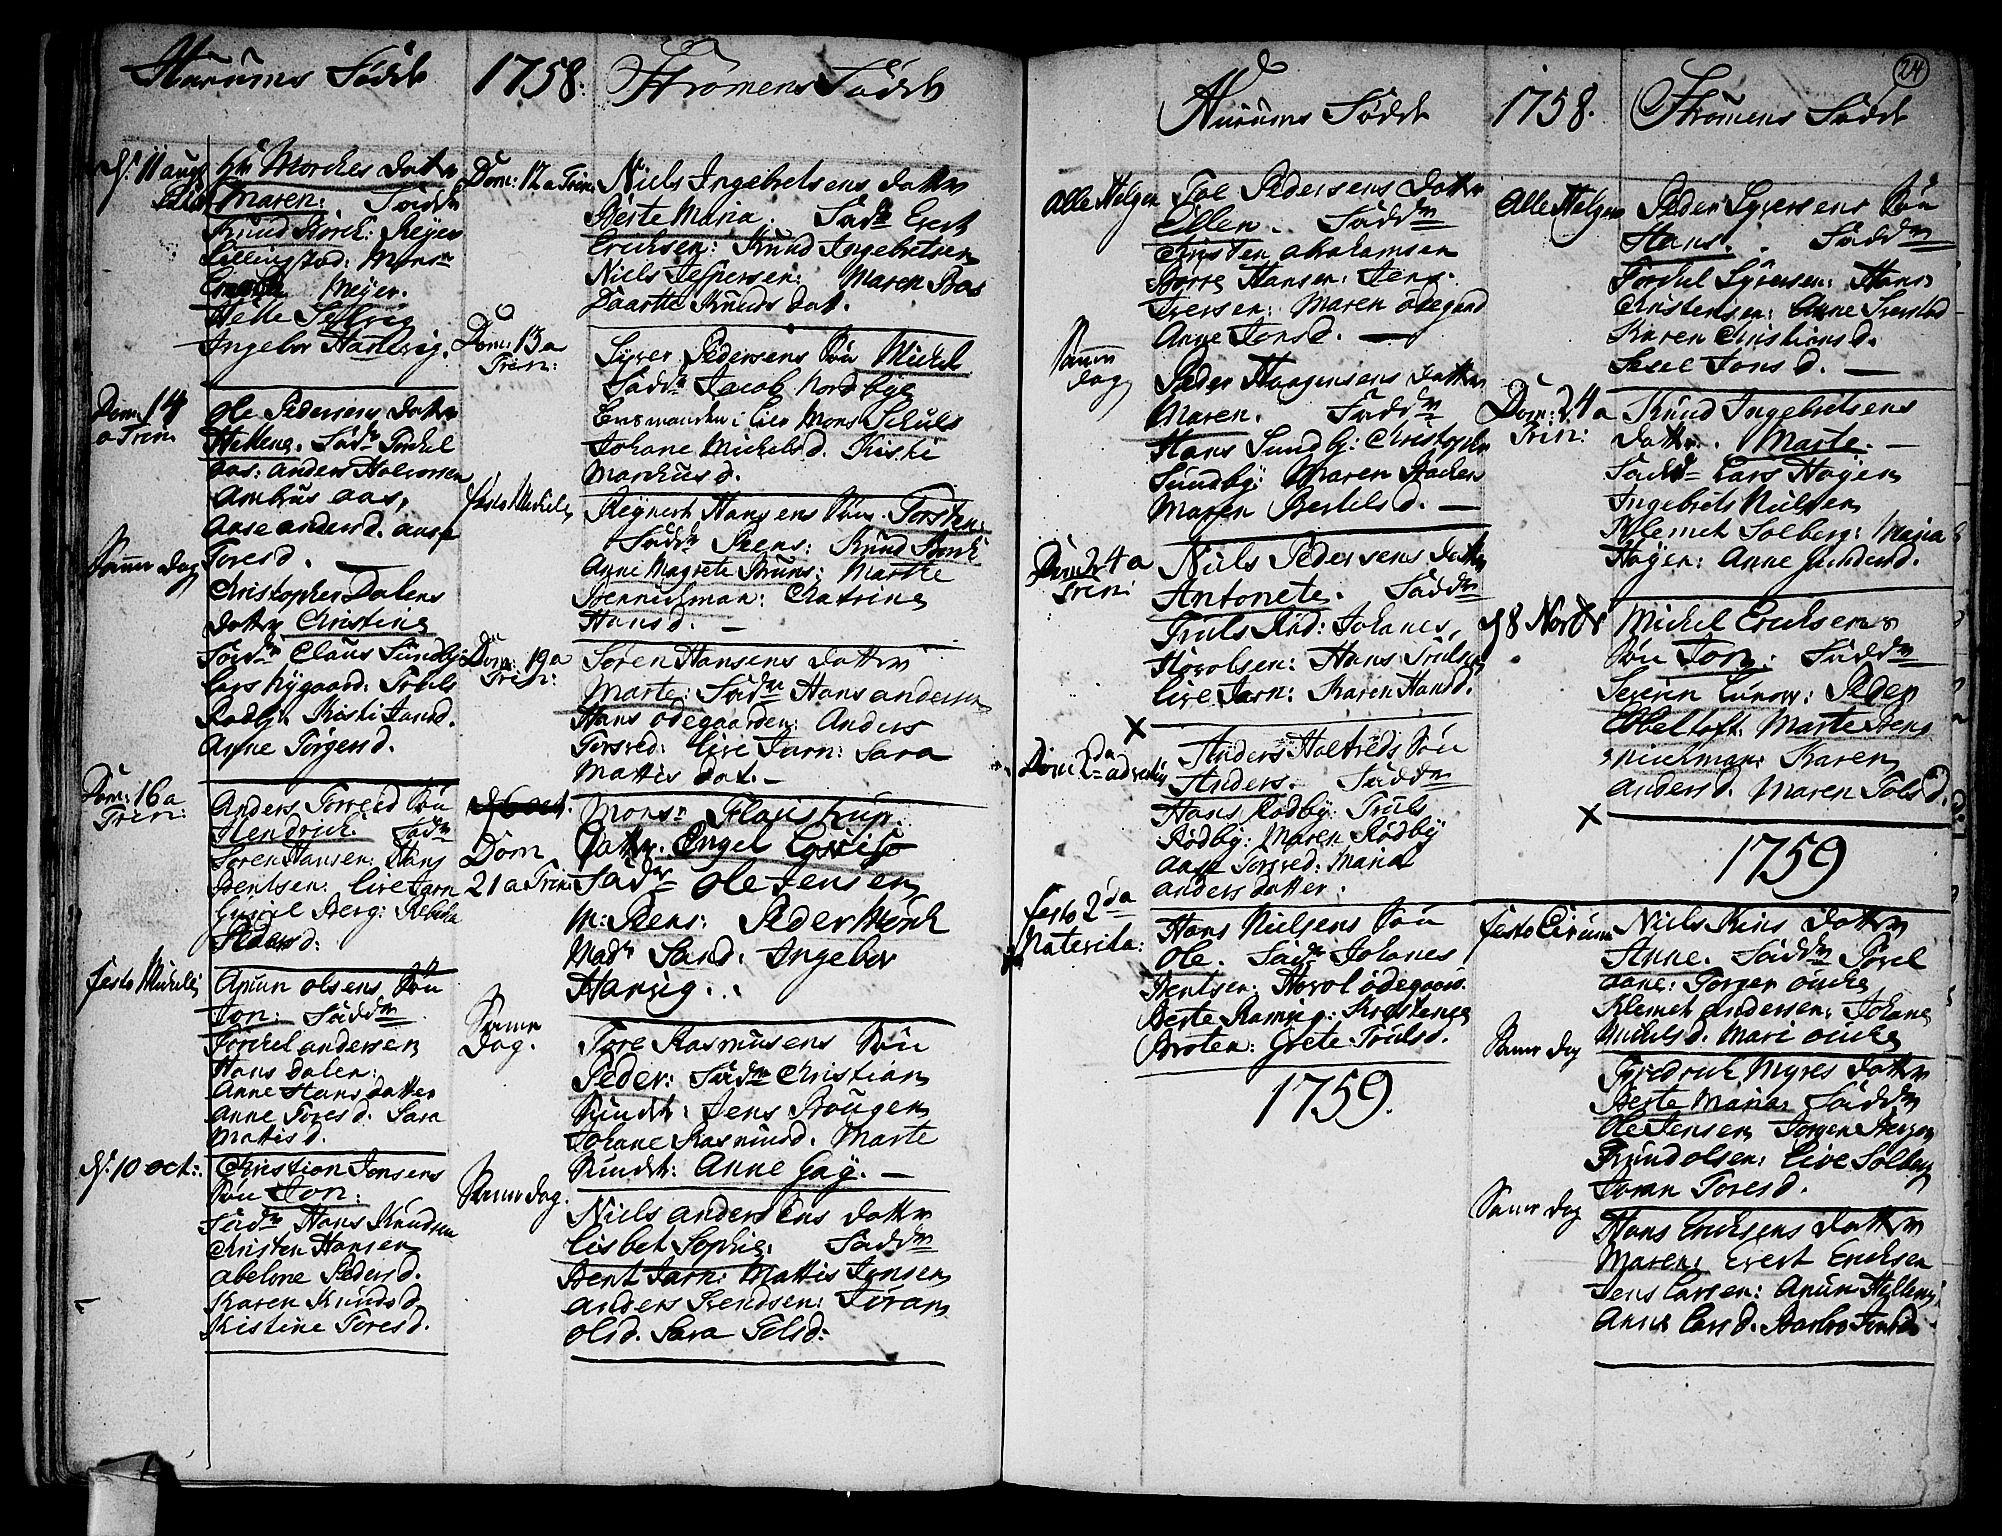 Hurums Födde 1758. Strömens Födde
d. 11 aug
Hr Morches datter
Maren: Fadd:
Knud Storch: Reyer
Killingstad: Mons:
Meyer.
Helle
Ingebor Hartvig.
Dom: 14
a Trin:
Ole Pedersens datter
Hellene. Fadd: Torkel
aas: anders Halvorsen
Ambrus aas,
Aase andersd. aase
Toresd.
Samme dag
Christopher Dalens
datter Christine
Fadd: Claus Sundby
Lars Nygaard: Trols
Rødby. Kisti Jansd.
Anne Jörgensd.
Dom: 16 a
Trin:
Anders Torsrud Sön
Hendrich. Fadd:
Sören Hansen: Hans
Bentsen: Live Jarn
Berg: Rebecka
Pedersd:
Festo Michelis
Amun olsens Sön
Jon: Fadd:
Torchel andersen
Hans dalen:
Anne Hans datter
Anne Toresd. Sara
Mattisd.
d. 10 oct:
Christian Jonsens
Sön Jon:
Fadd: Hans Knudsen
Christen Hansen
abelone Pedersd.
Karen Knudsd.
Kistine Toresd.
Dom: 12 a Trin:
Niels Ingebretsens datter
Berte Maria. Fadd: Evert
Ericksen: Knud Ingebretsen
Niels Jespersen: Maren Bos
Daarte Knuds dat.
Dom: 13 a
Trin:
Syver Pedersens Sön Michel
Fadd: Jacob Nordbye
Lensmanden i Lier Mons: Schuls
Johane Michelsd. Kisti
Marchusd.
Festo Michelis
Reinert Hansens Sön. Torsten:
Fadd: Peens: Knud Borch
Anne Magrete Bruns: Marthe
Stennichman: Chatrine
Hansd.
Dom: 19 a
Trin:
Sören Hansens datter
Marte: Fadd: Hans andersen
Hans ödegaarden: Anders
Torsrud: Live Jarn: Sara
Mattis dat.
d. 6 oct.
Dom
21 a Trin:
Mons: Flaustrup.
Datter. Engel Lovise
Fadd: Ole Jensen
M: Peens: Peder Mörch
Mad: Sand. Ingebor
Harvig.
Samme
Dag.
Tore Rasmusens Sön
Peder: Fadd: Christian
Sundet: Jens Hougen
Johane Rasmusd. Marte
Sundet: Anne Gay.
Samme dag.
Niels andersens datter
Lisbet Sophie: Fadd:
Bent Jarn: Mattis Jensen
anders Svendsen: Joran
olsd. Sara Tolsd:
24
Hurums Födde 1758. Strömens Födde
Alle Helgen
Toe Pedersens datter
Ellen. Fadd:
Christen abrahamsen
Borre Hansen: Jens
Iversen: Maren ödegaard
Anne Jonsd.
Samme
dag
Peder Haagensens datter
Maren. Fadd:
Hans Sundby: Christopher
Sundby: Maren
Maren Bertelsd.
Dom: 24 a
Trin:
Niels Pedersens datter
Antonete. Fadd:
Truls Röd: Johanes
Hövolsen: Hans Trulsen
Live Jarn: Karen Hansd.
X
Dom: 2da adventus
Anders Holtreds Sön
Anders. Fadd:
Hans Rödby: Truls
Rödby: Maren Rödby
aase Torsved: Maria
anders datter.
Festo 2da
Nativita:
Hans Nielsens Sön
Ole. Fadd: Johanes
Bentsen: Hovol ödegaar:
Berte Ramvig: Kirstence
Broten: Grete Trulsd.
1759.
Alle Helgen
Peder Syversens Sön
Hans. Fadd:
Torchel Syversen: Hans
Christensen: Anne
Karen Christiansd.
Sesel Jonsd.
Dom: 24 a
Trin:
Knud Ingebretsens
datter. Marte.
Fadd: Lars Hagen
Ingebret Nielsen
Klemet Solberg: Maria
Höyer: Anne Gundersd.
d 8 Novbr
Michel Ericksens
Sön Jon: Fadd:
Severin Lunow: Peder
Ebbeltoft: Marte Stens
nichman: Karen
andersd. Maren Tolsd.
X
1759
Festo Circum
Niels Kies datter
Anne. Fadd: Povel
aane: Torger
Klemet andersen: Johane
Michelsd. Mari
Samme dag
Fredrich Myres datter
Berte Maria: Fadd:
Ole Jensen Jörgen Bergen
Knud olsen: Live Solberg
Joran Toresd.
Samme dag
Hans Ericksens datter
Maren: Evert Ericksen
Jens Larsen: Amun
Anne Larsd. Barbro